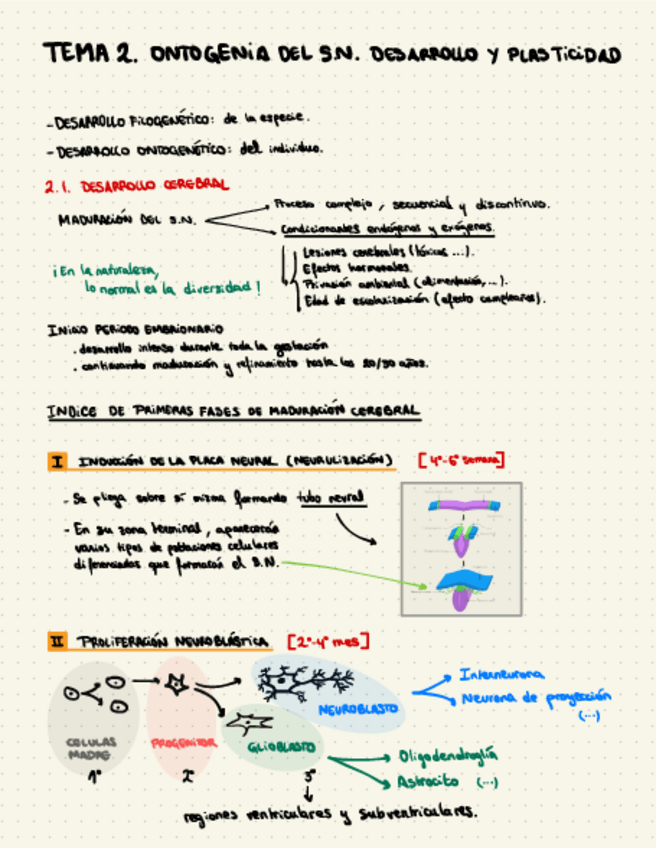 TEMA 2. ONTOGENIA DEL S.N. DESARROLLO Y PLASTICIDAD
- DESARROLLO FILOGENÉTICO: de la especie.
- DESARROLLO ONTOGENÉTICO: del individuo.
2.1. DESARROLLO CEREBRAL
MADURACIÓN DEL S.N.
Proceso complejo, secuencial y discontinuo.
Condicionantes endógenos y exógenos.
Lesiones cerebrales (tóxicos ...).
Efectos hormonales.
Privación ambiental (alimentación,...).
Edad de escolarización (efecto cumpleaños).
¡En la naturaleza,
lo normal es la diversidad!
INICIO PERIODO EMBRIONARIO
· desarrollo intenso durante toda la gestación
· continuando maduración y refinamiento hasta los 20/30 años.
INDICE DE PRIMERAS FASES DE MADURACIÓN CEREBRAL
I INDUCCIÓN DE LA PLACA NEURAL (NEURULIZACIÓN) [4ª-6ª semana]
- Se pliega sobre sí misma formando tubo neural
- En su zona terminal, aparecerán
varios tipos de poblaciones celulares
diferenciadas que formarán el S.N.
II PROLIFERACIÓN NEUROBLÁSTICA [2º-4º mes]
CELULAS
MADRE
1º
PROGENITOR
2º
NEUROBLASTO
GLIOBLASTO
3º
Interneurona
Neurona de proyección
(...)
Oligodendroglía
Astrocito (...)
regiones ventriculares y subventriculares.